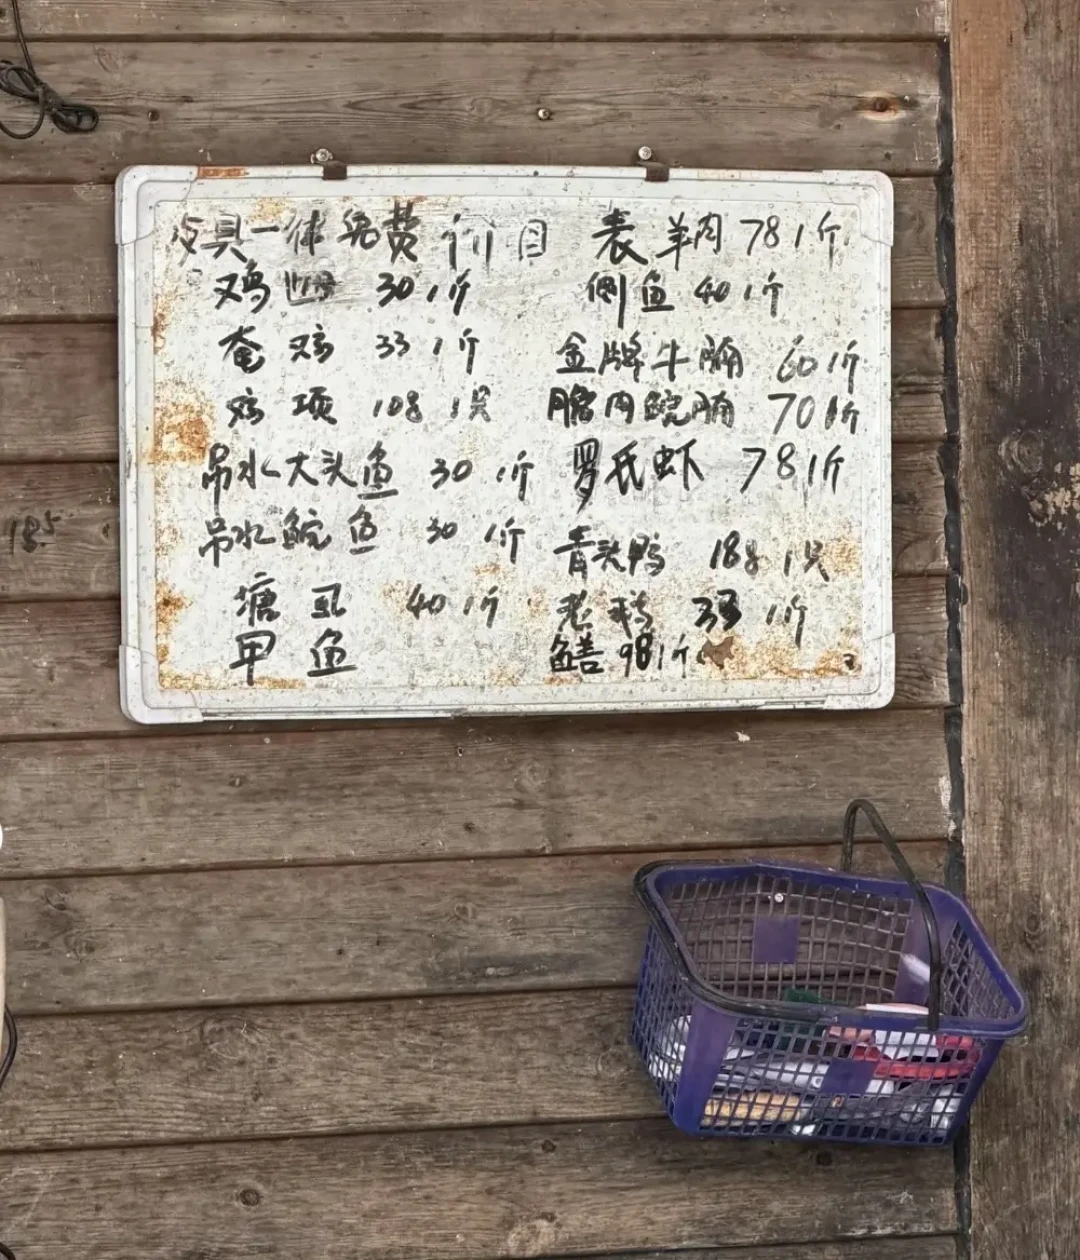 皮具一律免费 价目
鸡 30 1斤
奄鸡 33 1斤
鸡项 108 1只
吊水大头鱼 30 1斤
吊水鲩鱼 30 1斤
塘虱 40 1斤
甲鱼
羊肉 78 1斤
侧鱼 40 1斤
金牌牛腩 60 1斤
肉鲩腩 70 1斤
罗氏虾 78 1斤
青头鸭 188 1只
老鹅 33 1斤
鳝 98 1斤
185